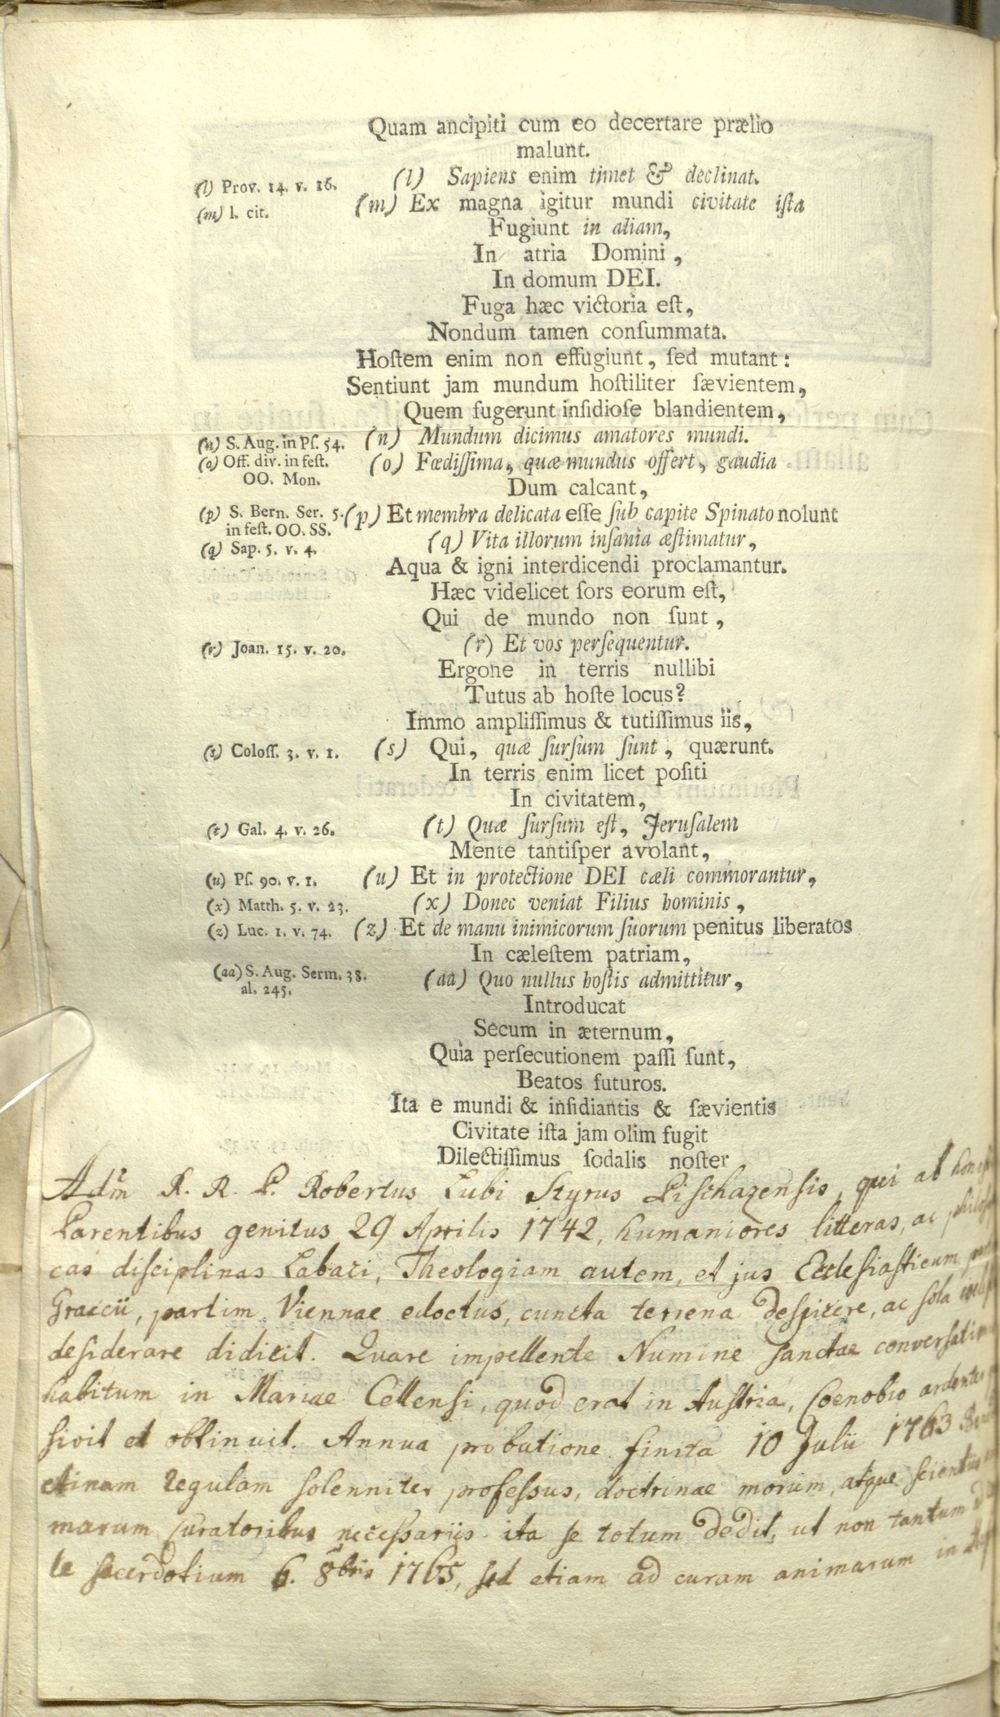 Quam ancipiti cum eo decertare prælio
malunt.
(l) Prov. 14. v. 16. (l) Sapiens enim timet & declinat.
(m) l. cit. (m) Ex magna igitur mundi civitate iſta
Fugiunt in aliam,
In atria Domini,
In domum DEI.
Fuga hæc victoria eſt,
Nondum tamen conſummata.
Hoſtem enim non effugiunt, ſed mutant:
Sentiunt jam mundum hoſtiliter ſævientem,
Quem fugerunt inſidioſe blandientem,
(n) S. Aug. in Pſ. 54. (n) Mundum dicimus amatores mundi.
(o) Off. div. in feſt. (o) Fœdiſſima, quæ mundus offert, gaudia
OO. Mon. Dum calcant,
(p) S. Bern. Ser. 5. (p) Et membra delicata eſſe ſub capite Spinato nolunt
in feſt. OO. SS.
(q) Sap. 5. v. 4. (q) Vita illorum inſania æſtimatur,
Aqua & igni interdicendi proclamantur.
Hæc videlicet ſors eorum eſt,
Qui de mundo non ſunt,
(r) Joan. 15. v. 20. (r) Et vos perſequentur.
Ergone in terris nullibi
Tutus ab hoſte locus?
Immo ampliſſimus & tutiſſimus iis,
(s) Coloſſ. 3. v. 1. (s) Qui, quæ ſurſum ſunt, quærunt.
In terris enim licet poſiti
In civitatem,
(t) Gal. 4. v. 26. (t) Quæ ſurſum eſt, Jeruſalem
Mente tantiſper avolant,
(u) Pſ. 90. v. 1. (u) Et in protectione DEI cæli commorantur,
(x) Matth. 5. v. 23. (x) Donec veniat Filius hominis,
(z) Luc. 1. v. 74. (z) Et de manu inimicorum ſuorum penitus liberatos
In cæleſtem patriam,
(aa) S. Aug. Serm. 38. (aa) Quo nullus hoſtis admittitur,
al. 245.
Introducat
Secum in æternum,
Quia perſecutionem paſſi ſunt,
Beatos futuros.
Ita e mundi & inſidiantis & ſævientis
Civitate iſta jam olim fugit
Dilectiſſimus ſodalis noſter
Adm R. R. P. Robertus Lubi Styrus Pischazensis, qui ab
Parentibus genitus 29 Aprilis 1742, humaniores litteras, ac
cas disciplinas Labaci, Theologiam autem, et jus Ecclesiasticum
Graecii, partim Viennae edoctus, cuncta terrena despicere, ac sola
desiderare didicit. Quare impellente Numine Sanctae
habitum in Mariae Cellensi, quod erat in Austria, Coenobio
sivit et obtinuit. Annua probatione finita 10 Julii 1763
ctinam regulam solenniter professus, doctrinae morum, atque
marum Curatoribus necessariis ita se totum dedit, ut non tantum
le sacerdotium 6. 8bris 1765, sed etiam ad curam animarum in